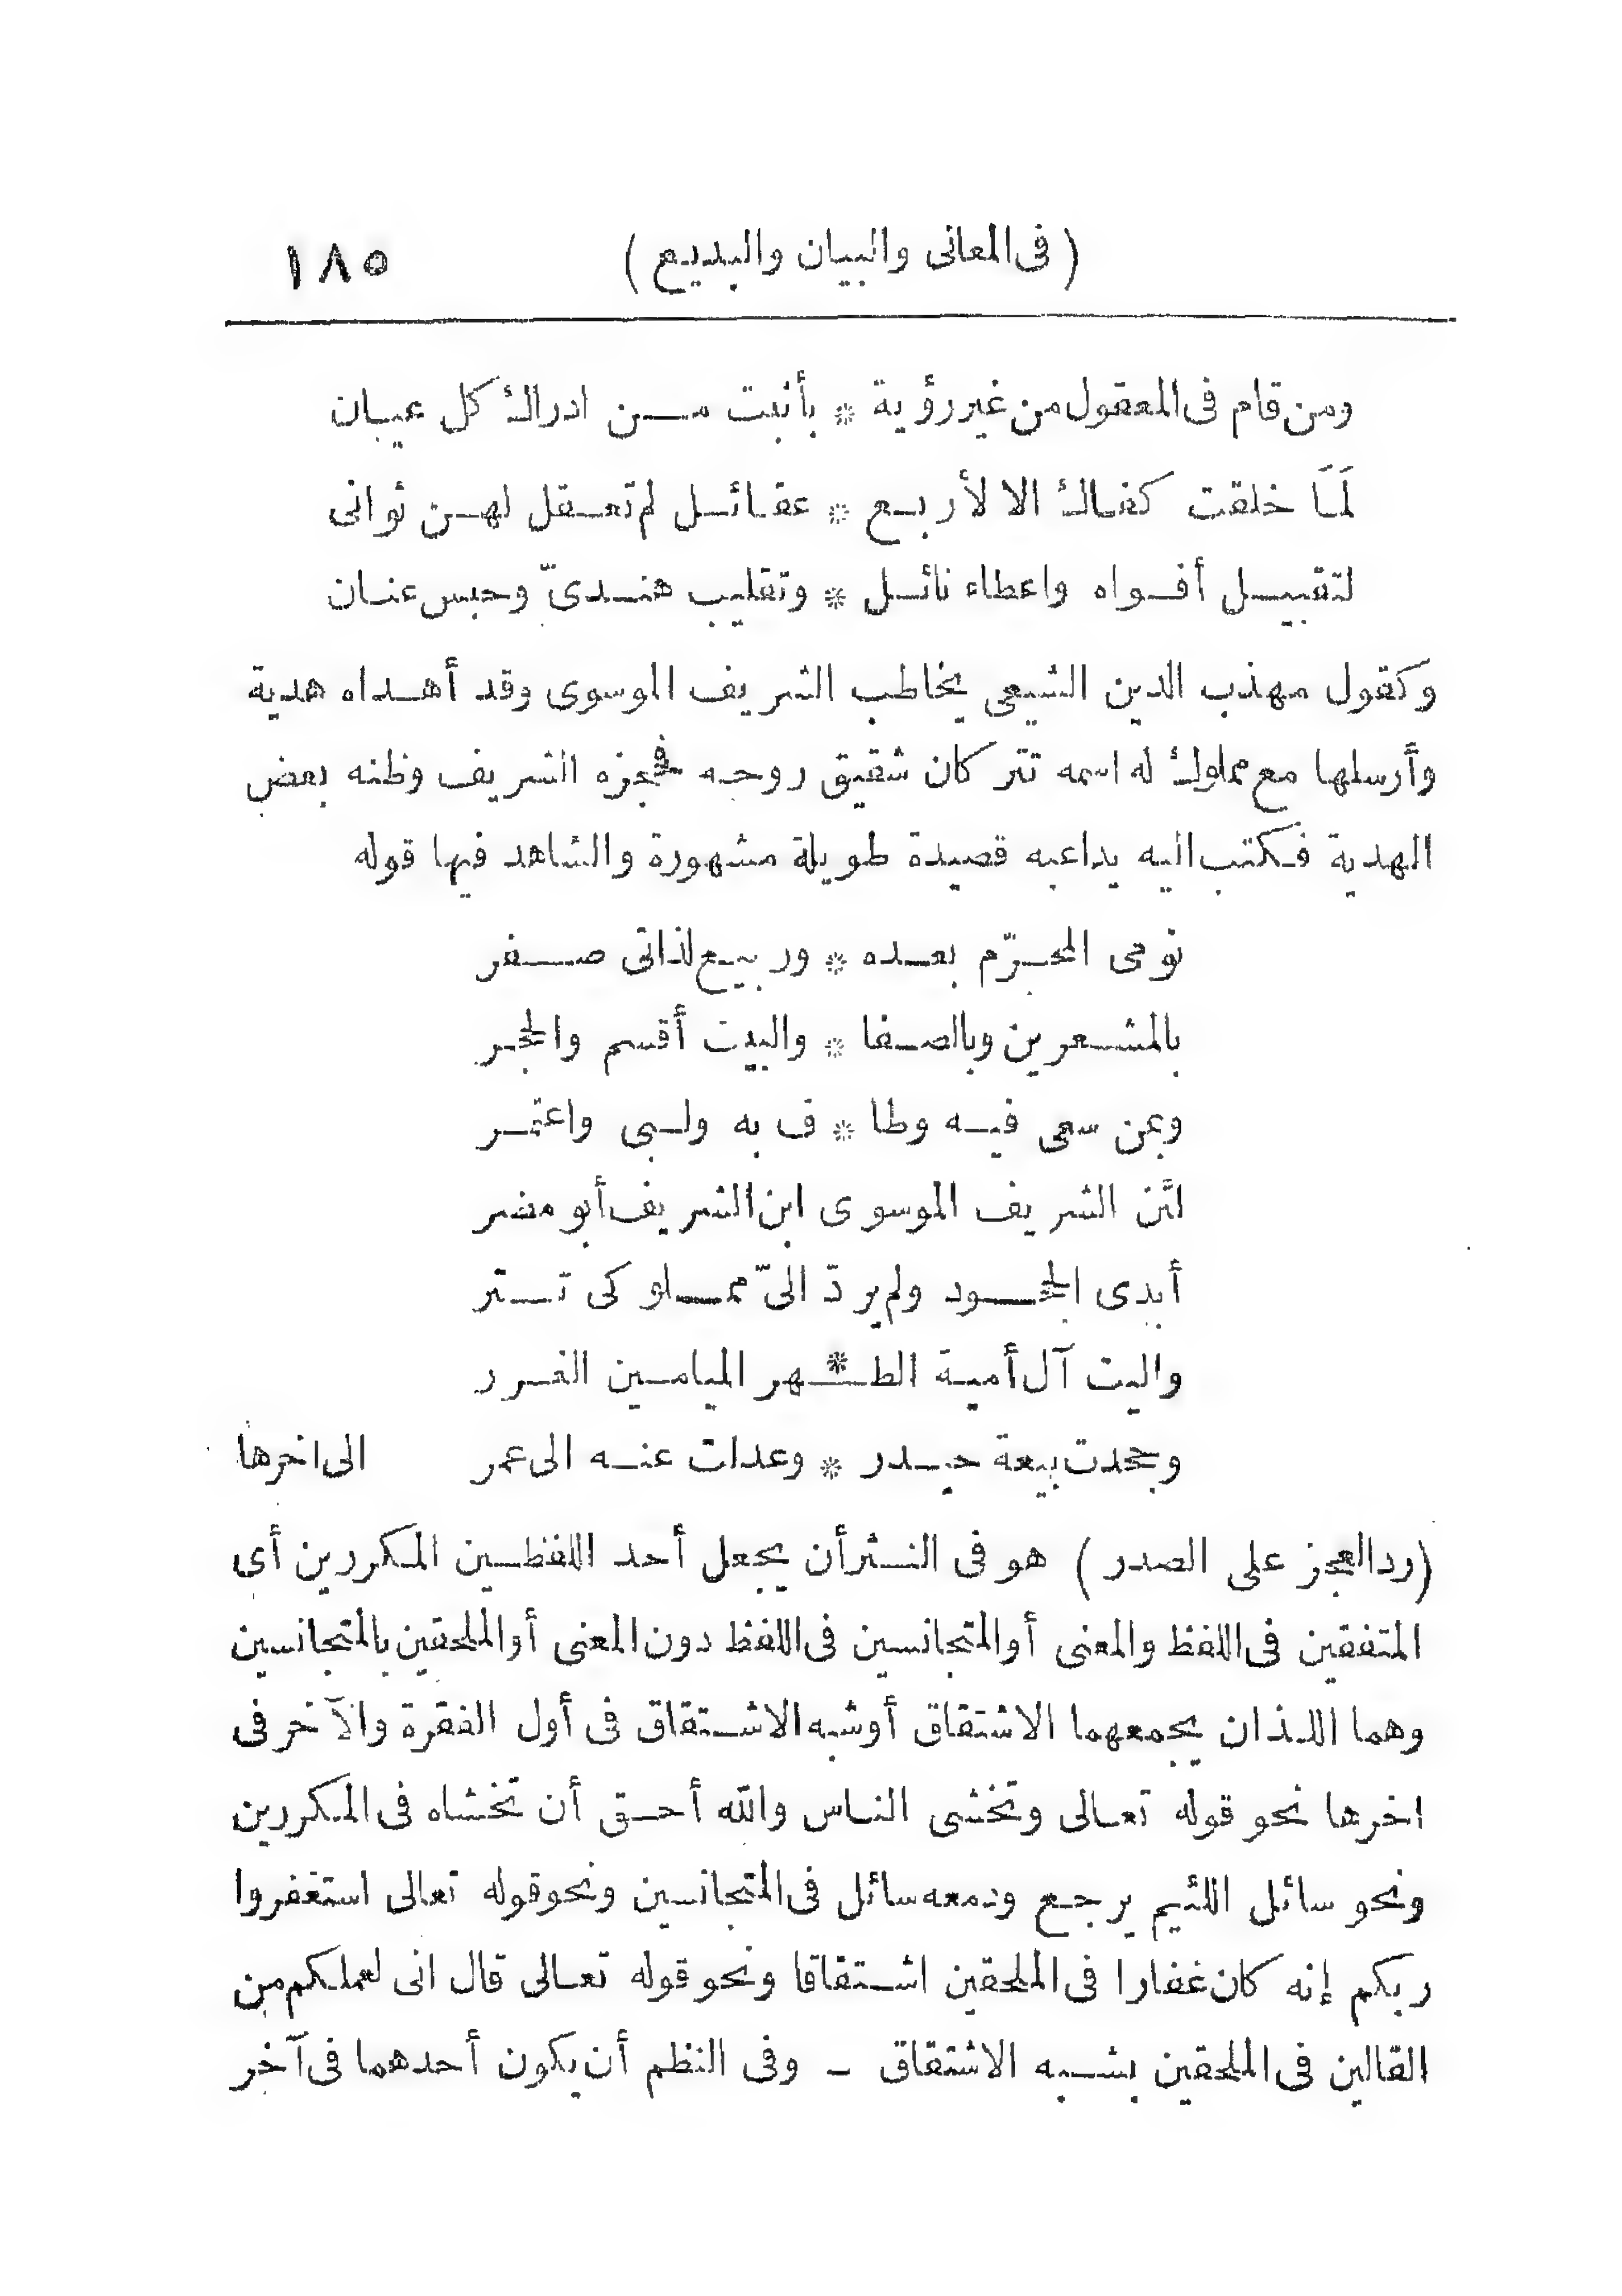 (فى المعانى والبيان والبديع) ١٨٥
ومن قام فى المعقول من غير رؤية * بأثبت مـــن ادراك كل عيـان
لَمَا خلقت كفـاك الا لأربـع * عقـائـل لم تعـقل لهـن ثوانى
لتقبيـل أفـواه واعطاء نائـل * وتقليب هنـدىّ وحبس عنـان
وكقول مهذب الدين الشيعى يخاطب الشريف الموسوى وقد أهـداه هدية
وأرسلها مع مملوك له اسمه تتر كان شقيق روحـه فحجزه الشريف وظنه بعض
الهدية فكتب اليه يداعبه قصيدة طويلة مشهورة والشاهد فيها قوله
نومى المحـرّم بعـده * وربيـع لذاتى صـفر
بالمشـعرين وبالصـفا * والبيت أقسم والحجـر
وبمن سعى فيـه وطا * ف به ولـبى واعتمـر
لئن الشريف الموسوى ابن الشريف أبو مضر
أبدى الجحـود ولم يردّ الىّ ممـلوكى تـتر
واليت آل أميـة الطـ * ـهر الميامـين الغـرر
وجحدت بيعة حيـدر * وعدلت عنـه الى عمر الى اخرها
(رد العجز على الصدر) هو فى النـثر أن يجعل أحد اللفظـين المكررين أى
المتفقين فى اللفظ والمعنى أو المتجانسين فى اللفظ دون المعنى أو الملحقين بالمتجانسين
وهما اللـذان يجمعهما الاشتقاق أو شبه الاشـتقاق فى أول الفقرة والآخر فى
اخرها نحو قوله تعـالى وتخشى النـاس والله أحـق أن تخشاه فى المكررين
ونحو سائل اللئيم يرجـع ودمعه سائل فى المتجانسين ونحو قوله تعالى استغفروا
ربكم إنه كان غفارا فى الملحقين اشـتقاقا ونحو قوله تعـالى قال انى لعملكم من
القالين فى الملحقين بشـبه الاشتقاق ـ وفى النظم أن يكون أحدهما فى آخر